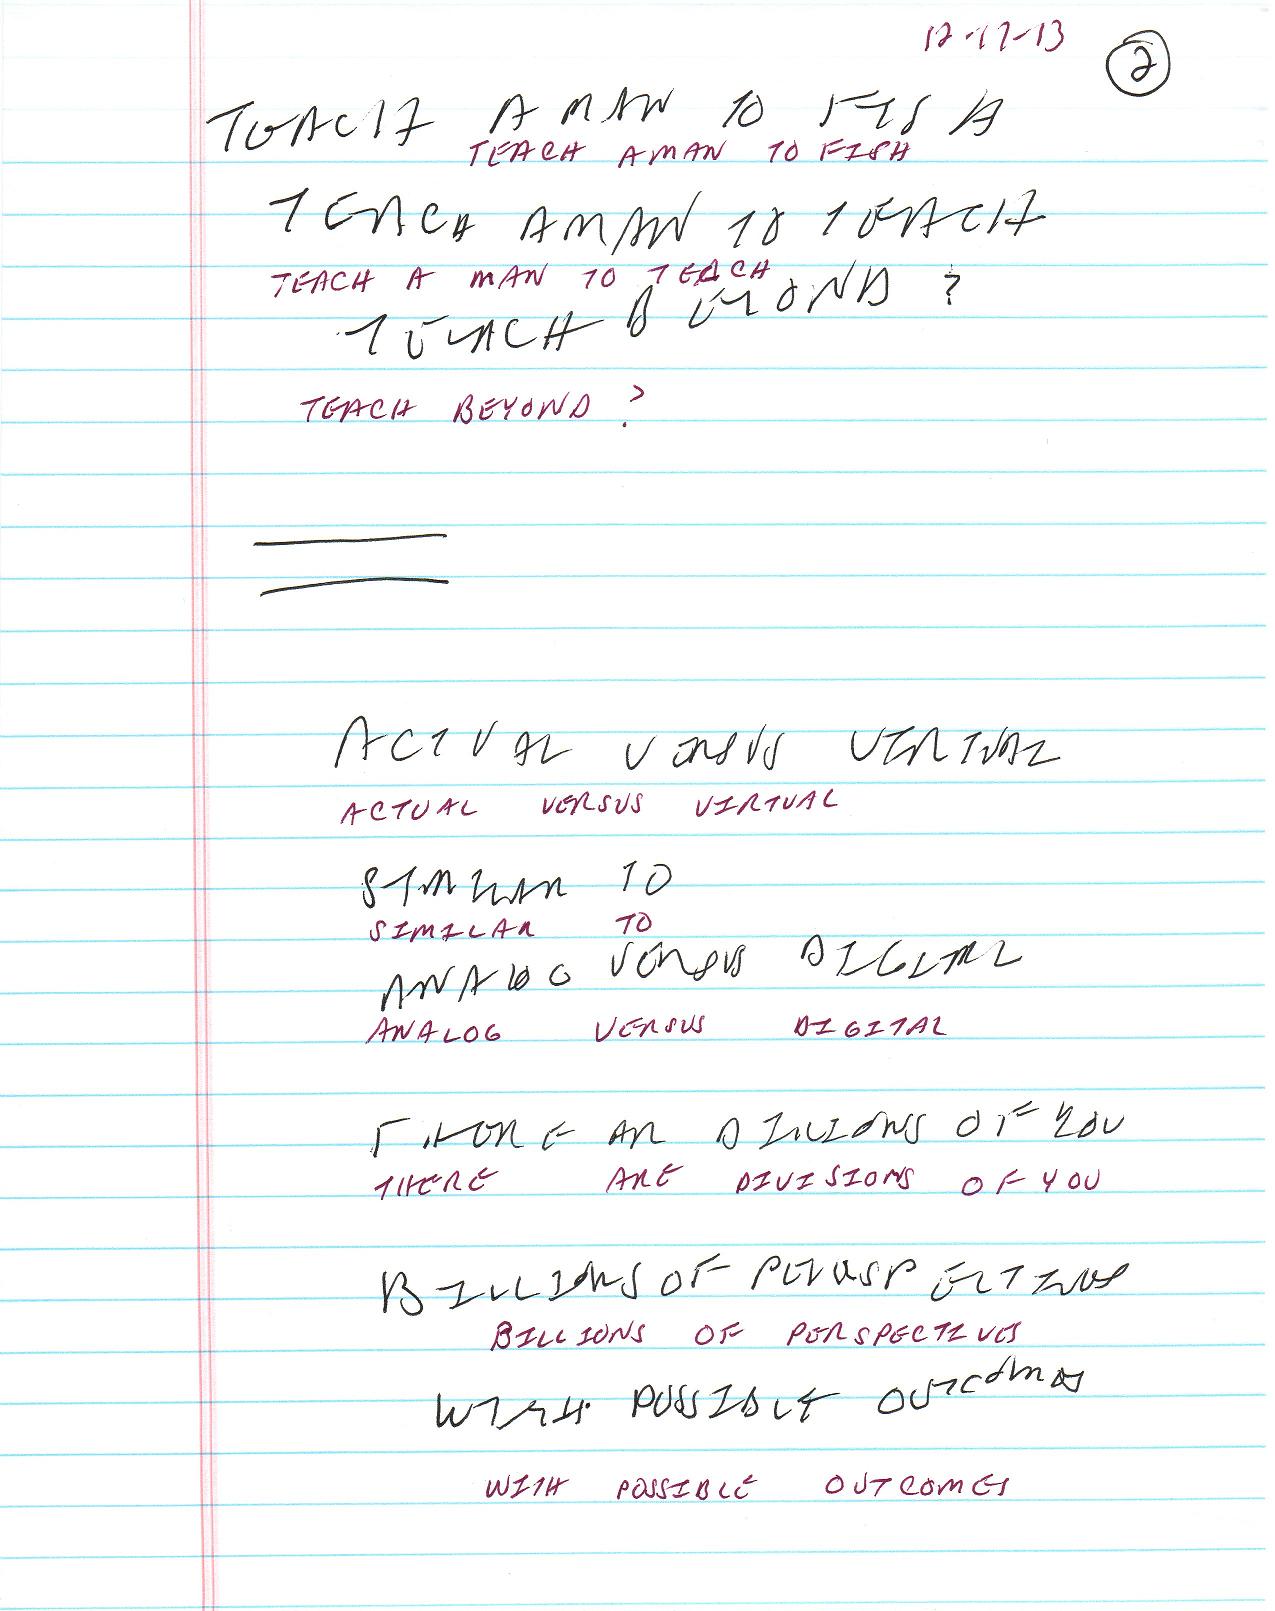 12-17-13
2
TEACH A MAN TO FISH
TEACH A MAN TO FISH
TEACH A MAN TO TEACH
TEACH A MAN TO TEACH
TEACH BEYOND ?
TEACH BEYOND ?
ACTUAL VERSUS VIRTUAL
ACTUAL VERSUS VIRTUAL
SIMILAR TO
SIMILAR TO
ANALOG VERSUS DIGITAL
ANALOG VERSUS DIGITAL
THERE AR OF YOU
THERE ARE DIVISIONS OF YOU
BILLIONS OF PERSPECTIVES
BILLIONS OF PERSPECTIVES
WITH POSSIBLE OUTCOMES
WITH POSSIBLE OUTCOMES